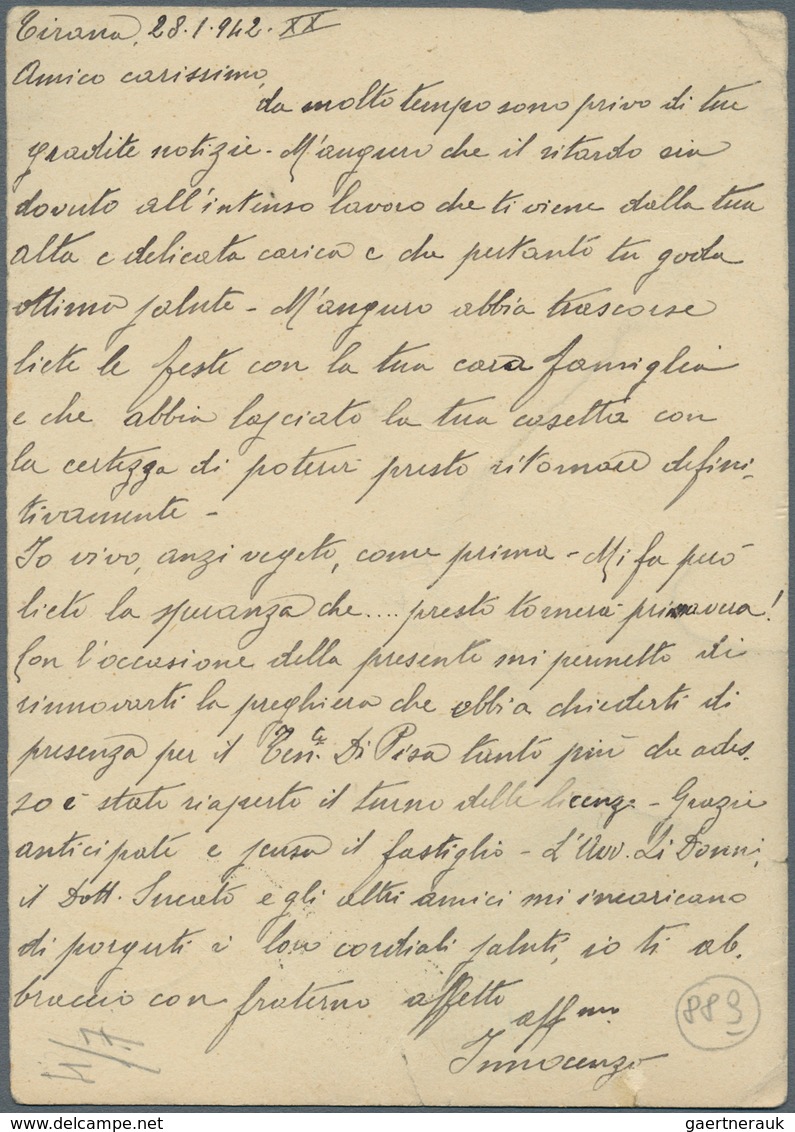 Tirana, 28.1.942. XX
Amico carissimo,
da molto tempo sono privo di tue
gradite notizie - M'auguro che il ritardo sia
dovuto all'intenso lavoro che ti viene dalla tua
alta e delicata carica e che pertanto tu goda
ottima salute - M'auguro abbia trascorse
liete le feste con la tua cara famiglia
e che abbia lasciato la tua casetta con
la certezza di poterci presto ritornare defini-
tivamente -
Io vivo, anzi vegeto, come prima - Mi fa però
lieto la speranza che .... presto tornerà primavera!
Con l'occasione della presente mi permetto di
rinnovarti la preghiera che ebbi a chiederti di
presenza per il Ten.te Di Pisa tanto più che ades-
so è stato riaperto il turno delle licenze - Grazie
anticipate e scusa il fastiglio - L'Avv. Li Donni,
il Dott. Sucato e gli altri amici mi incaricano
di porgerti i loro cordiali saluti, io ti ab-
braccio con fraterno affetto
aff.mo
Innocenzo
4/7
889
gaertnerauk